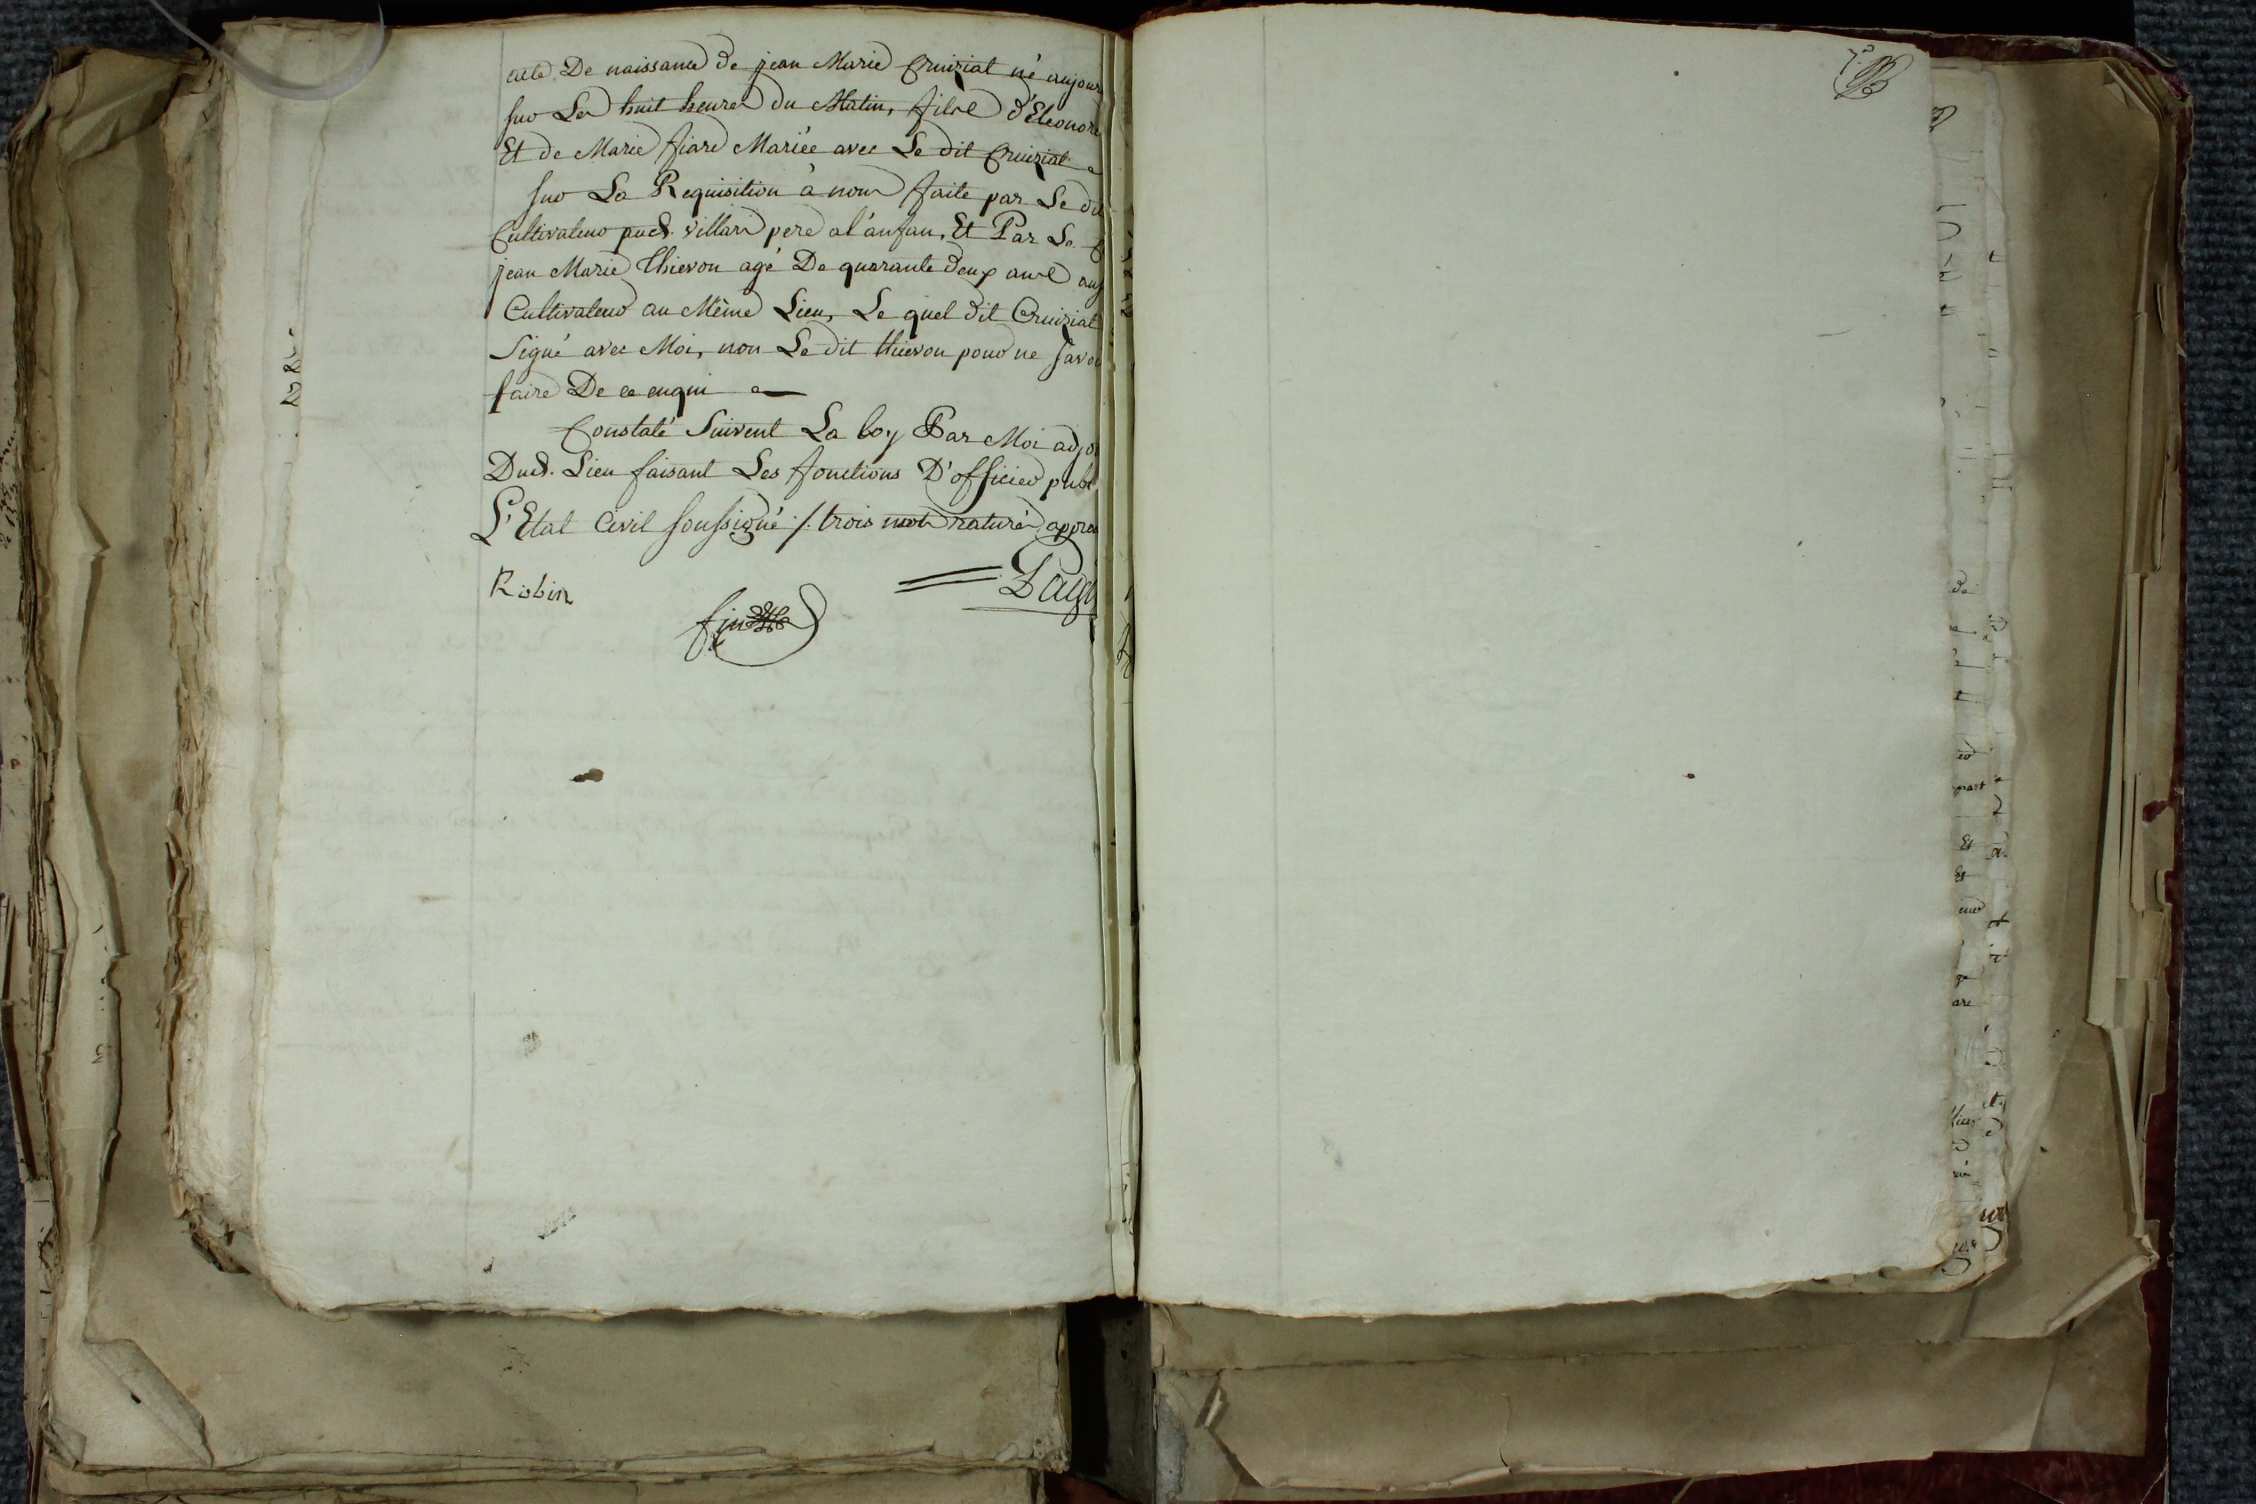 acte De naissance de jean Marie Cruiziat né aujour
sur Les huit heures du Matin, fils d'Eleonore
Et de Marie fiard Mariée avec Le dit Cruiziat
sur La Requisition à nous faite par Le dit
Cultivateur aud. villard pere a l'anfan, Et Par Le
jean Marie thievon agé De quarante deux ans aus
Cultivateur au Même Lieu, Le quel dit Cruiziat
Signé avec Moi, non Le dit thievon pour ne Savoi
faire De ce enqui
Constaté Suivent La loy Par Moi adjo
Dud. Lieu faisant Les fonctions D'officier publ
L'Etat Civil soussigné /. trois mots raturés appro
Robin
Pag
fin